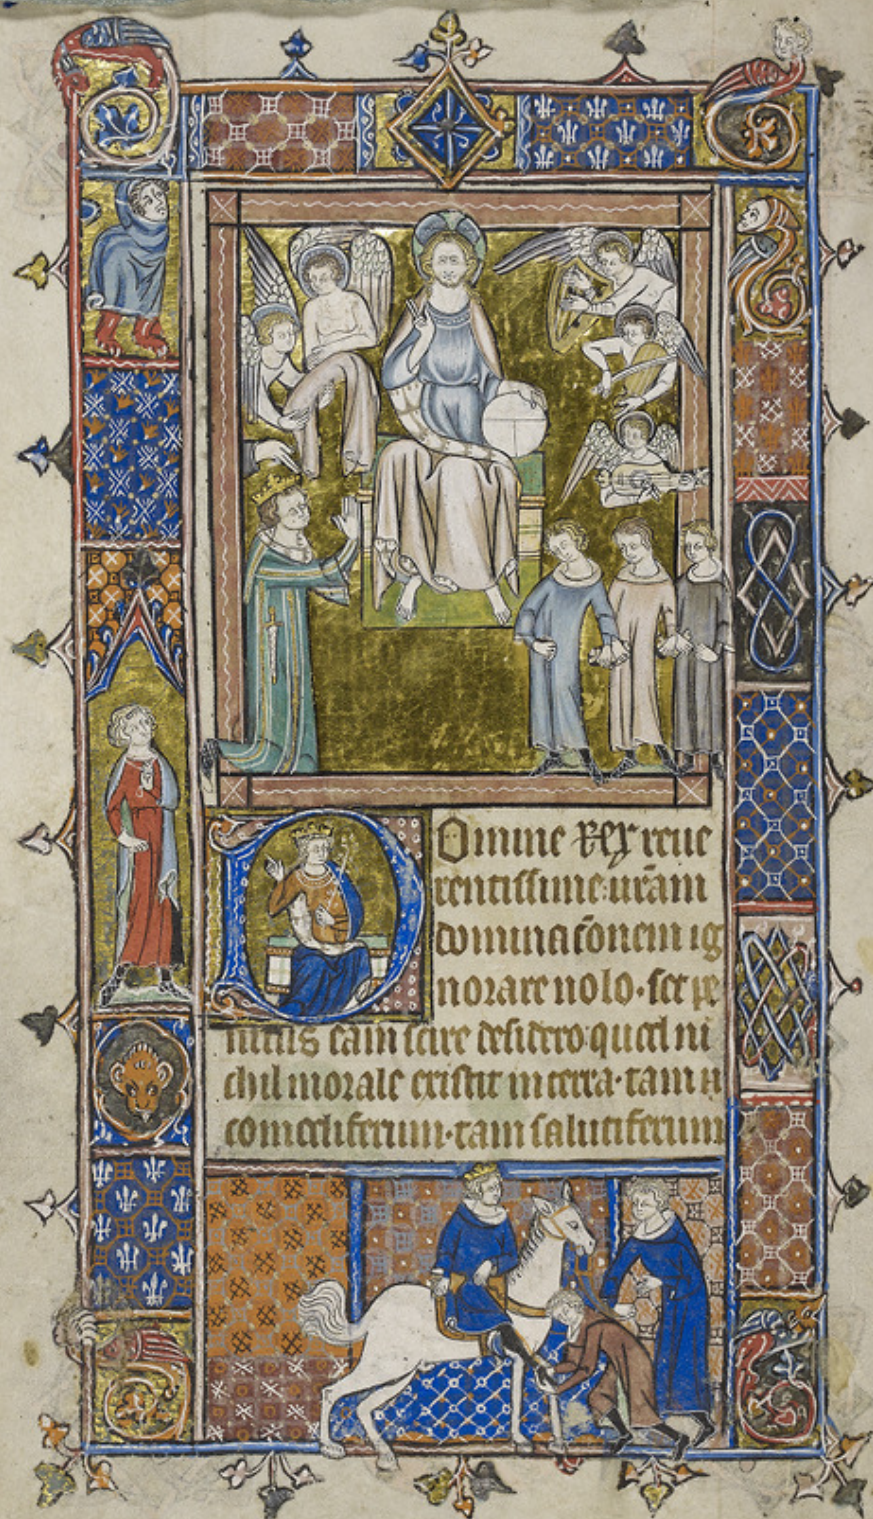 Domine Rex reue
rentissime urãm
dominacõnem ig
norare nolo. set pe
nitus eam scire desidero. quod ni
chil morale existit in terra. tam
tam salutiferum